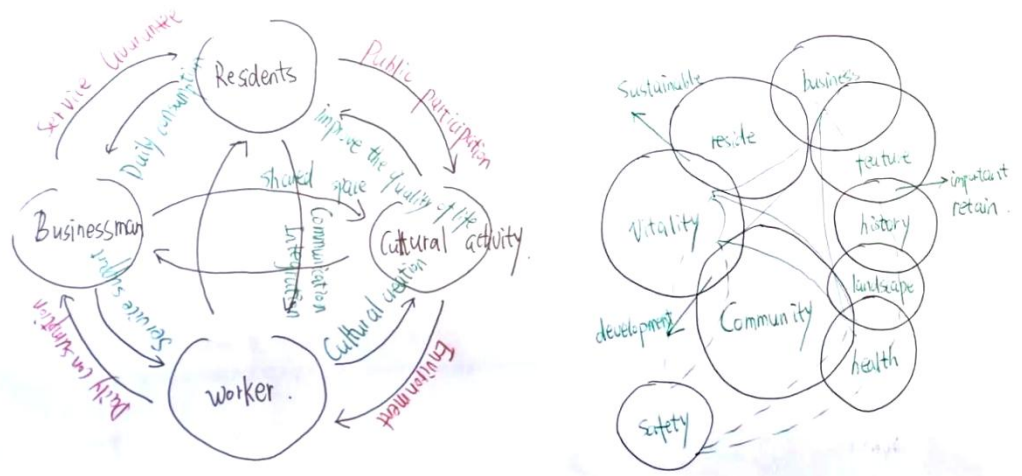 Service Guarantee
Residents
Public participation
Daily consumption
Improve the quality of life
shared space
Businessman
Communication
Integration
Cultural activity
Service support
Cultural creation
Daily consumption
worker.
Environment
Sustainable
business
reside
feature
important
retain.
Vitality
history
landscape
Community
development
health
Safety